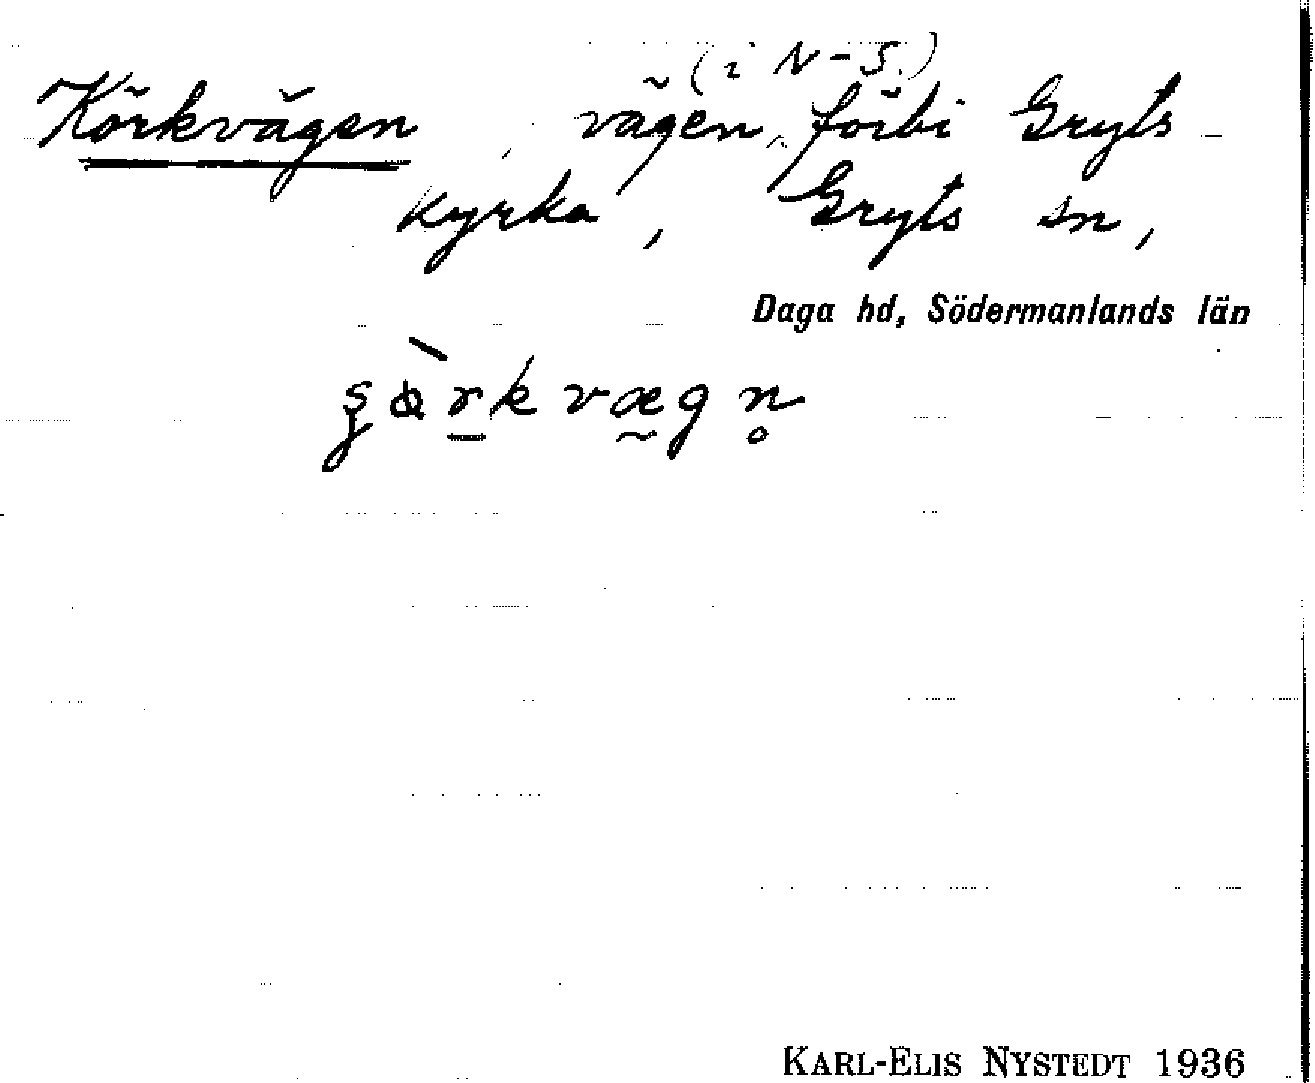 Körkvägen, vägen (i N-S.) förbi Gryts
kyrka, Gryts sn,
Daga hd, Södermanlands län
KARL-ELIS NYSTEDT 1936